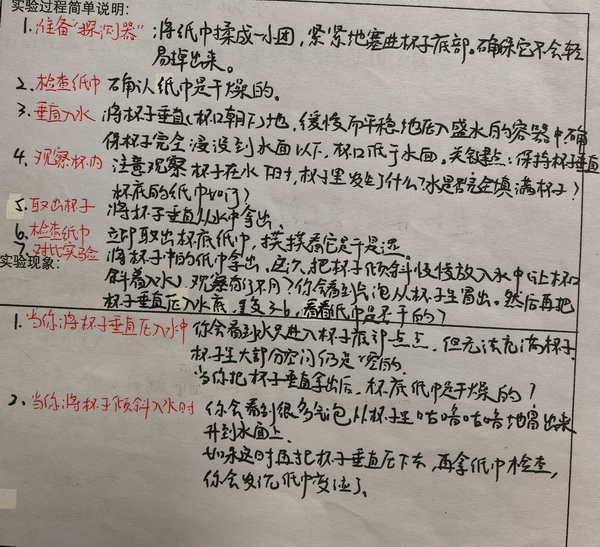 实验过程简单说明:
1. 准备"探测器":将纸巾揉成一小团,紧紧地塞进杯子底部。确保它不会轻
易掉出来。
2. 检查纸巾 确认纸巾是干燥的。
3. 垂直入水 将杯子垂直(杯口朝下)地,缓慢而平稳地压入盛水的容器中,确
保杯子完全浸没到水面以下,杯口低于水面。关键点:保持杯子垂直
4. 观察杯内 注意观察杯子在水下时,杯子里发生了什么?水是否完全填满杯子?
杯底的纸巾如何?
5. 取出杯子 将杯子垂直从水中拿出。
6. 检查纸巾 立即取出杯底纸巾,摸摸看它是干是湿。
7. 对比实验 将杯子中的纸巾拿出,这次把杯子倾斜慢慢放入水中(让杯口
实验现象:
斜着入水)观察有何不同?你会看到气泡从杯子里冒出。然后再把
杯子垂直压入水底,重复3-6,看看纸巾是否干的?
1. 当你将杯子垂直压入水中 你会看到水只进入杯子底部一点点,但无法充满杯子
杯子里大部分空间仍是"空的
当你把杯子垂直拿出后,杯底纸巾是干燥的?
2. 当你将杯子倾斜入水时 你会看到很多气泡从杯子里咕噜咕噜地冒出来
升到水面上
如果这时再把杯子垂直压下去,再拿纸巾检查,
你会发现纸巾变湿了。